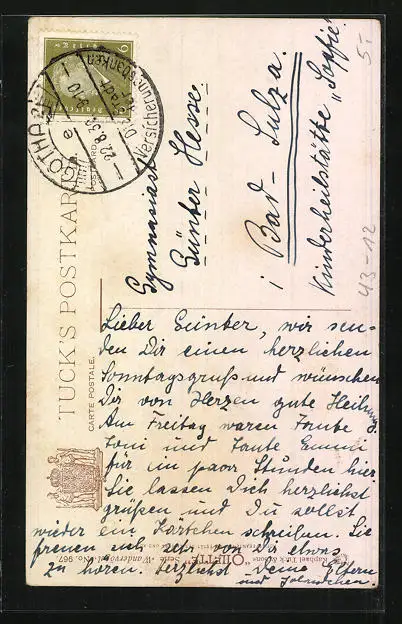 Gymnasiast
Günter Hesse.
i Bad-Sulza.
Kinderheilstätte „Sophie"
43-12
5,-
Lieber Günter, wir sen-
den Dir einen herzlichen
Sonntagsgruß und wünschen
Dir von Herzen gute Heilung.
Am Freitag waren Tante
Toni und Tante Emmi
für ein paar Stunden hier.
Sie lassen Dich herzlichst
grüßen und Du sollst
wieder ein Kärtchen schreiben. Sie
freuen sich sehr von Dir etwas
zu hören. Herzlichst Deine Eltern
und
TUCK'S POSTKARTE
CARTE POSTALE.
POSTCARD
Raphael Tuck & Sons "OILETTE" Serie „Wandervögel" No. 967.
GOTHA
22.8.30
Versicherungsbanken
6